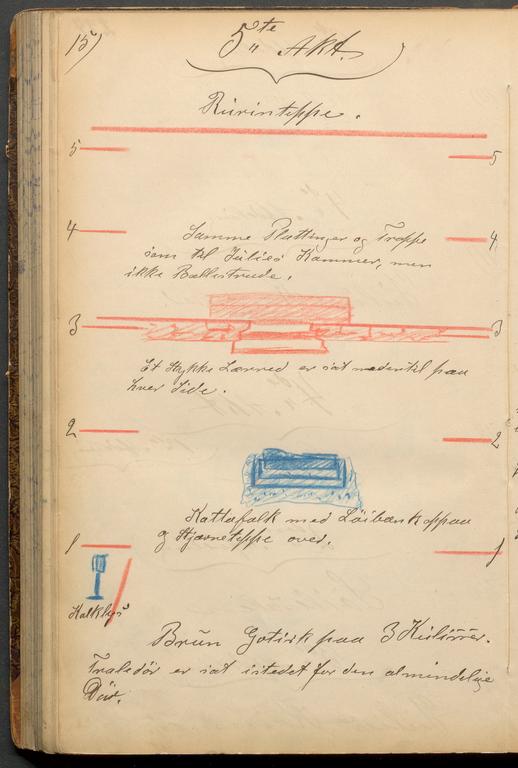 15)
5te Akt.
Ruinteppe.
5 5
4 Samme Plattinger og Trappe 4
som til Julies Kammer, men
ikke Ballustrade.
3 3
Et Stykke Lærred er sat nedentil paa
hver Side.
2 2
Kattafalk med Löibænk oppaa
og Stjærneteppe over.
1 1
Kalklys
Brun Gotisk paa 3 Kulisser.
Træledör er sat istedet for den almindelige
Dör.